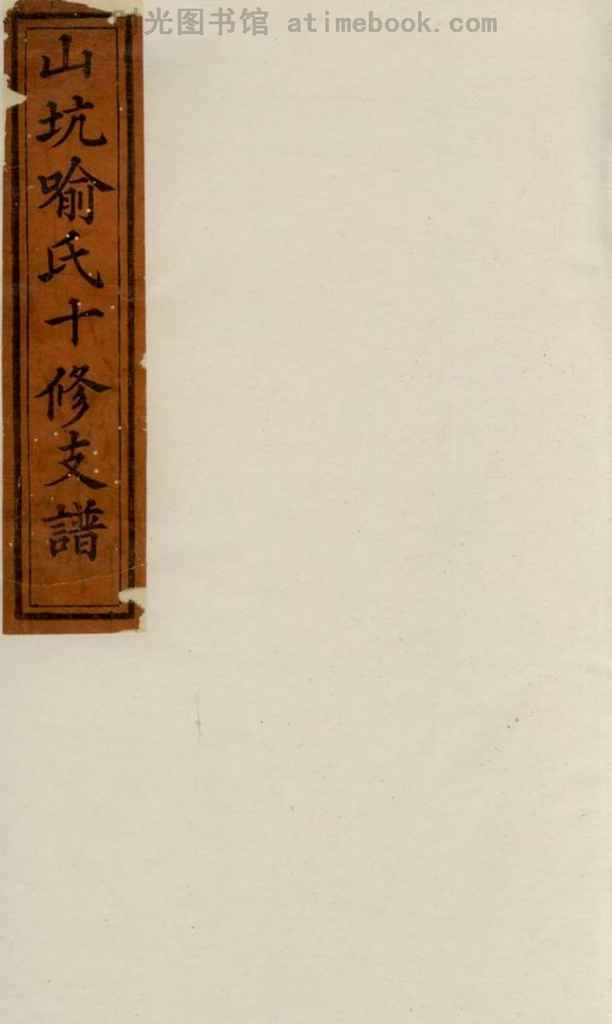 光图书馆 atimebook.com
山坑喻氏十修支譜